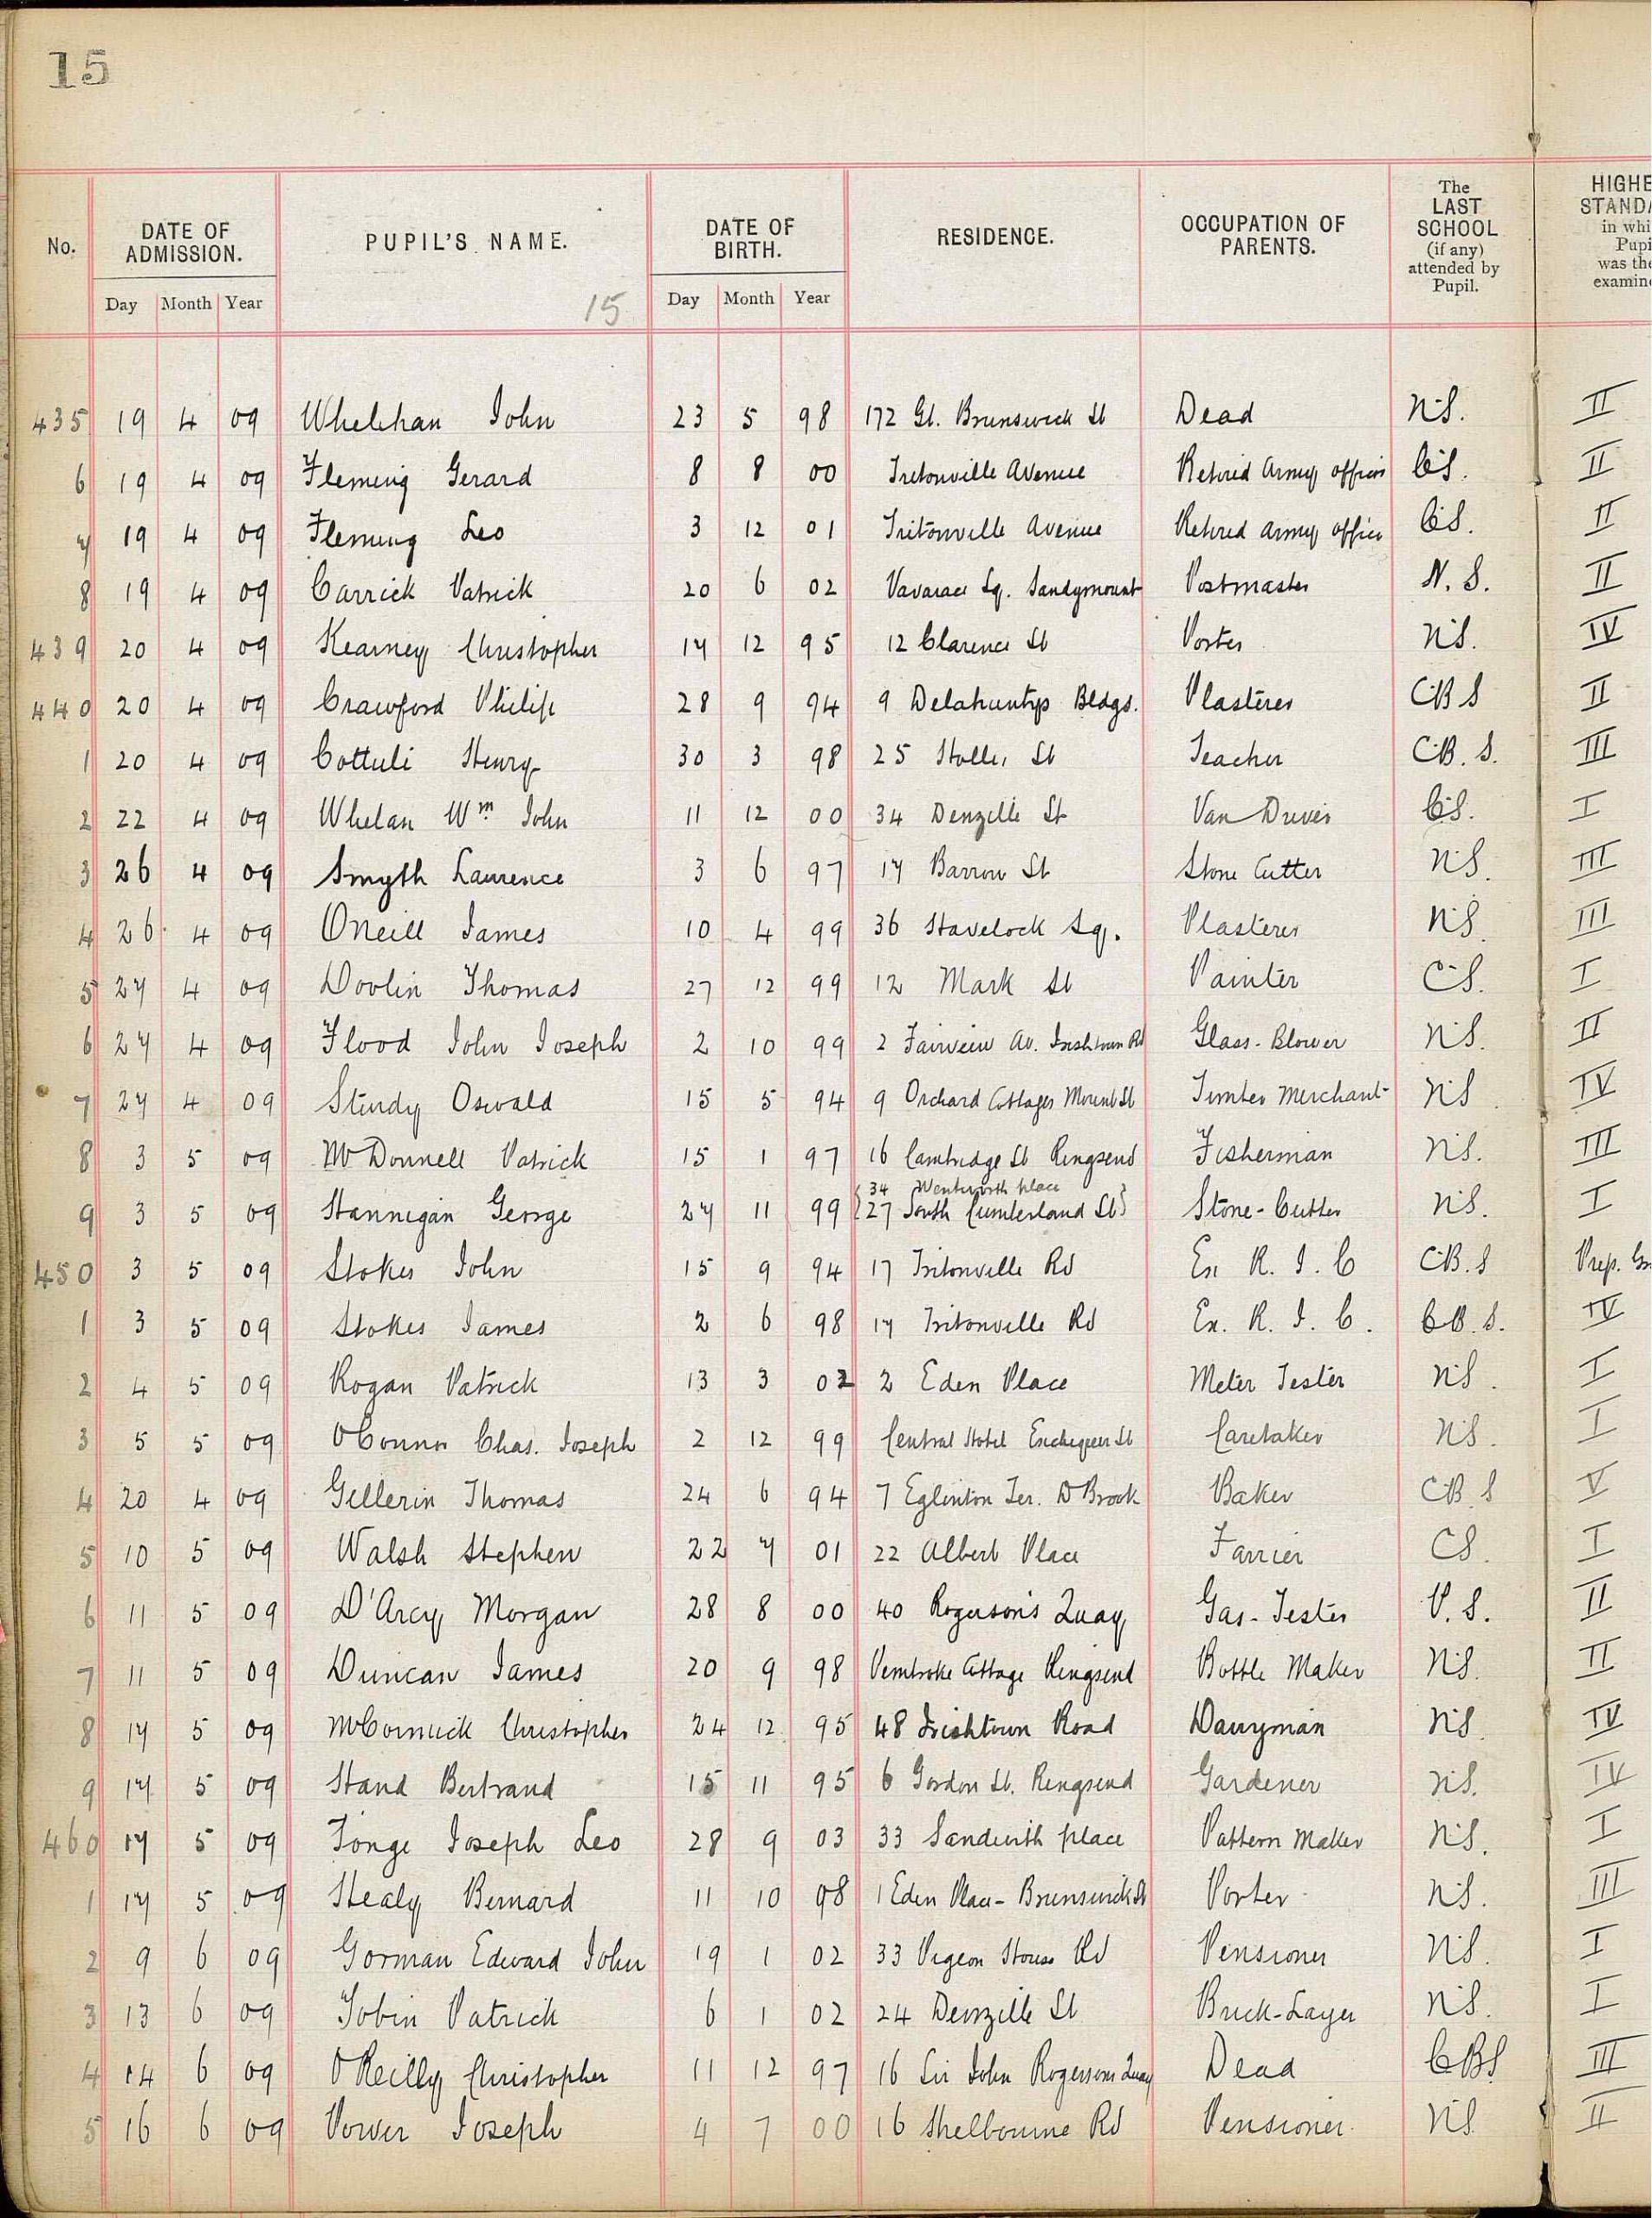 15
No. DATE OF ADMISSION. PUPIL'S NAME. DATE OF BIRTH. RESIDENCE. OCCUPATION OF PARENTS. The LAST SCHOOL (if any) attended by Pupil. HIGHE STANDA in whi Pupi was the examine
Day Month Year 15 Day Month Year
435 19 4 09 Whelehan John 23 5 98 172 Gt. Brunswick St Dead N.S. II
6 19 4 09 Fleming Gerard 8 8 00 Tritonville Avenue Retired Army officer C.S. II
7 19 4 09 Fleming Leo 3 12 01 Tritonville Avenue Retired Army officer C.S. II
8 19 4 09 Carrick Patrick 20 6 02 Sq. Sandymount Postmaster N. S. II
439 20 4 09 Kearney Christopher 17 12 95 12 Clarence St Porter N.S. IV
440 20 4 09 Crawford Philip 28 9 94 9 Delahuntys Bldgs. Plasterer C.B S II
1 20 4 09 Cottuli Henry 30 3 98 25 Holles St Teacher C.B. S. III
2 22 4 09 Whelan Wm John 11 12 00 34 Denzille St Van Driver C.S. I
3 26 4 09 Smyth Laurence 3 6 97 17 Barrow St Stone Cutter N.S. III
4 26 4 09 ONeill James 10 4 99 36 Havelock Sq. Plasterer N.S. III
5 27 4 09 Doolin Thomas 27 12 99 12 Mark St Painter C.S. I
6 27 4 09 Flood John Joseph 2 10 99 2 Fairview Av. Irishtown Rd Glass-Blower N.S. II
7 27 4 09 Sturdy Oswald 15 5 94 9 Orchard Cottages Mount St Timber Merchant N.S IV
8 3 5 09 McDonnell Patrick 15 1 97 16 Cambridge St Ringsend Fisherman N.S. III
34 Wentworth place
9 3 5 09 Hannigan George 27 11 99 27 South Cumberland St Stone-Cutter N.S. I
450 3 5 09 Stokes John 15 9 94 17 Tritonville Rd Ex R. I. C C.B.S Prep. Gr
1 3 5 09 Stokes James 2 6 98 17 Tritonville Rd Ex. R. I. C. C B. S. IV
2 4 5 09 Rogan Patrick 13 3 02 2 Eden Place Meter Tester N.S. I
3 5 5 09 OConnor Chas. Joseph 2 12 99 Central Hotel Exchequer St Caretaker N.S. I
4 20 4 09 Gellerin Thomas 24 6 94 7 Eglinton Ter. D Brook Baker C.B. S V
5 10 5 09 Walsh Stephen 22 7 01 22 Albert Place Farrier C.S. I
6 11 5 09 D'Arcy Morgan 28 8 00 40 Rogerson's Quay Gas-Tester P. S. II
7 11 5 09 Duncan James 20 9 98 Pembroke Cottage Ringsend Bottle Maker N.S. II
8 17 5 09 McCormick Christopher 24 12 95 48 Irishtown Road Dairyman N.S. IV
9 17 5 09 Hand Bertrand 15 11 95 6 Gordon St. Ringsend Gardener N.S. IV
460 17 5 09 Tonge Joseph Leo 28 9 03 33 Sandwith place Pattern Maker N.S. I
1 17 5 09 Healy Bernard 11 10 98 1 Eden Place-Brunswick St Porter N.S. III
2 9 6 09 Gorman Edward John 19 1 02 33 Pigeon House Rd Pensioner N.S. I
3 13 6 09 Tobin Patrick 6 1 02 24 Denzille St Brick-Layer N.S. I
4 14 6 09 OReilly Christopher 11 12 97 16 Sir John Rogersons Quay Dead C.B.S III
5 16 6 09 Power Joseph 4 7 00 16 Shelbourne Rd Pensioner N.S. II